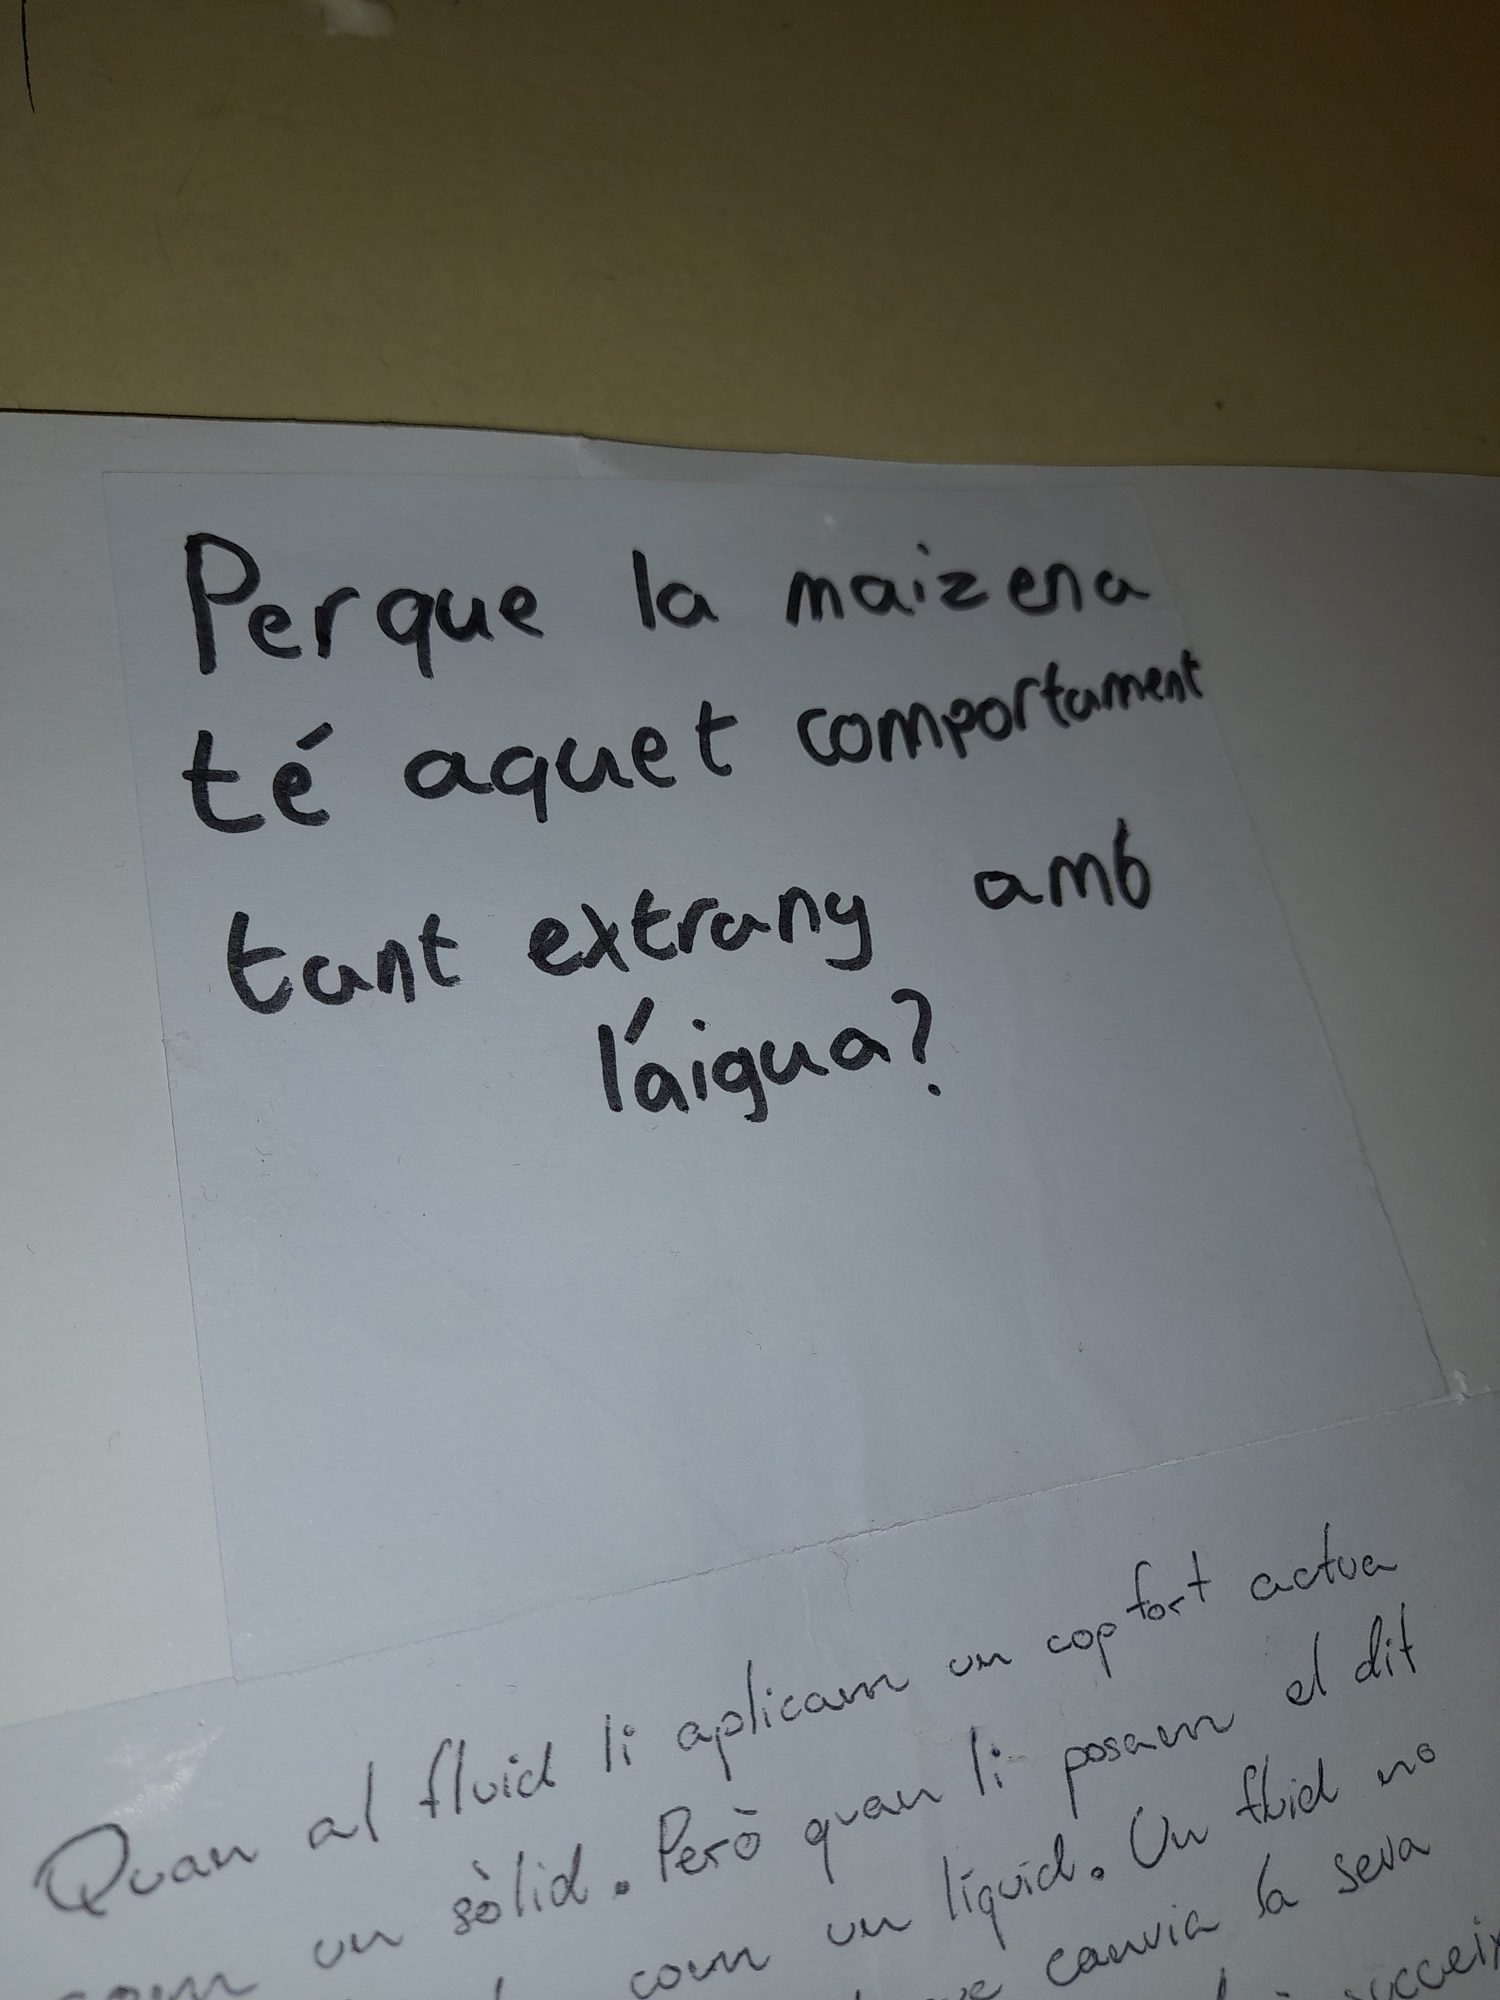 Perque la maizena
té aquet comportament
tant extrany amb
l'áigua?
Quan al fluid li aplicam un cop fort actua
com un sòlid. Però quan li posam el dit
com un líquid. Un fluid no
canvia la seva